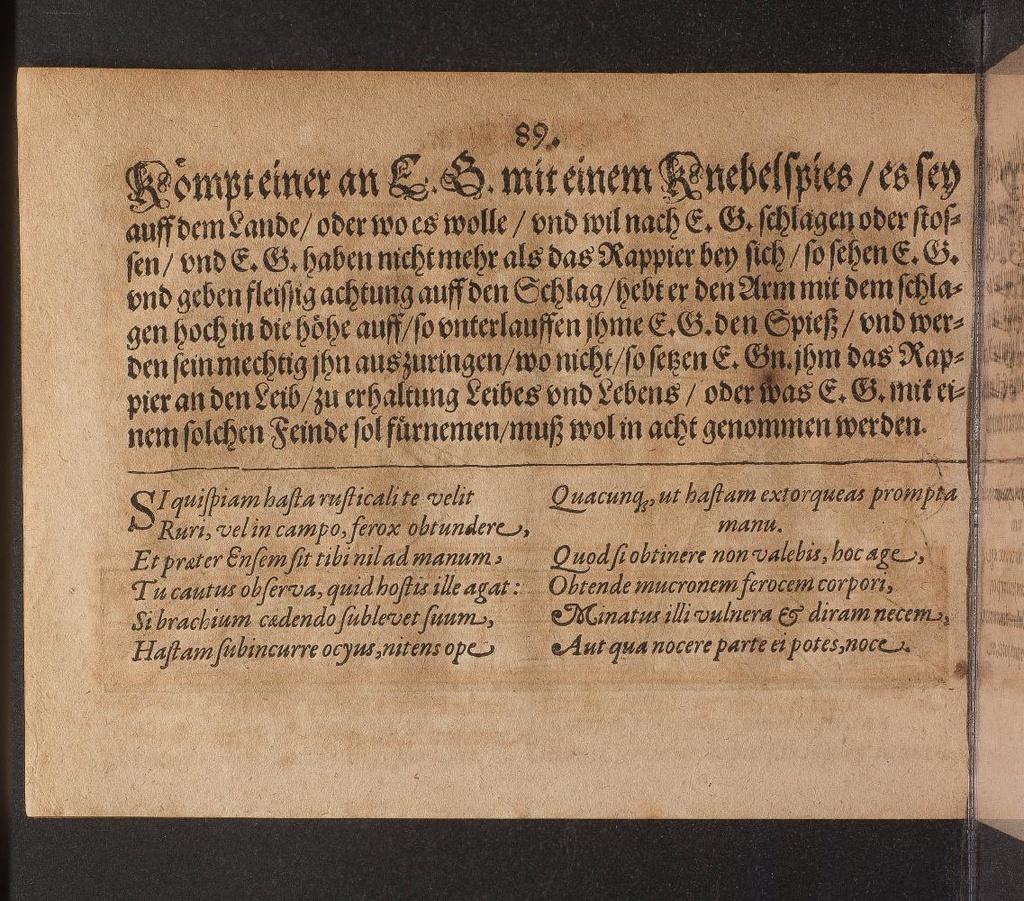 89.
Kömpt einer an E. G. mit einem Knebelspies / es sey
auff dem Lande / oder wo es wolle / vnd wil nach E. G. schlagen oder stos-
sen / vnd E. G. haben nicht mehr als das Rappier bey sich / so sehen E. G.
vnd geben fleissig achtung auff den Schlag / hebt er den Arm mit dem schla-
gen hoch in die höhe auff / so vnterlauffen jhme E. G. den Spieß / vnd wer-
den sein mechtig jhn auszuringen / wo nicht / so setzen E. Gn. jhm das Rap-
pier an den Leib / zu erhaltung Leibes vnd Lebens / oder was E. G. mit ei-
nem solchen Feinde sol fürnemen / muß wol in acht genommen werden.
SI quispiam hasta rusticali te velit
Ruri, vel in campo, ferox obtundere,
Et præter Ensem sit tibi nil ad manum,
Tu cautus observa, quid hostis ille agat:
Si brachium cædendo sublevet suum,
Hastam subincurre ocyus, nitens ope
Quacunq;, ut hastam extorqueas prompta
manu.
Quod si obtinere non valebis, hoc age,
Obtende mucronem ferocem corpori,
Minatus illi vulnera & diram necem,
Aut qua nocere parte ei potes, noce.